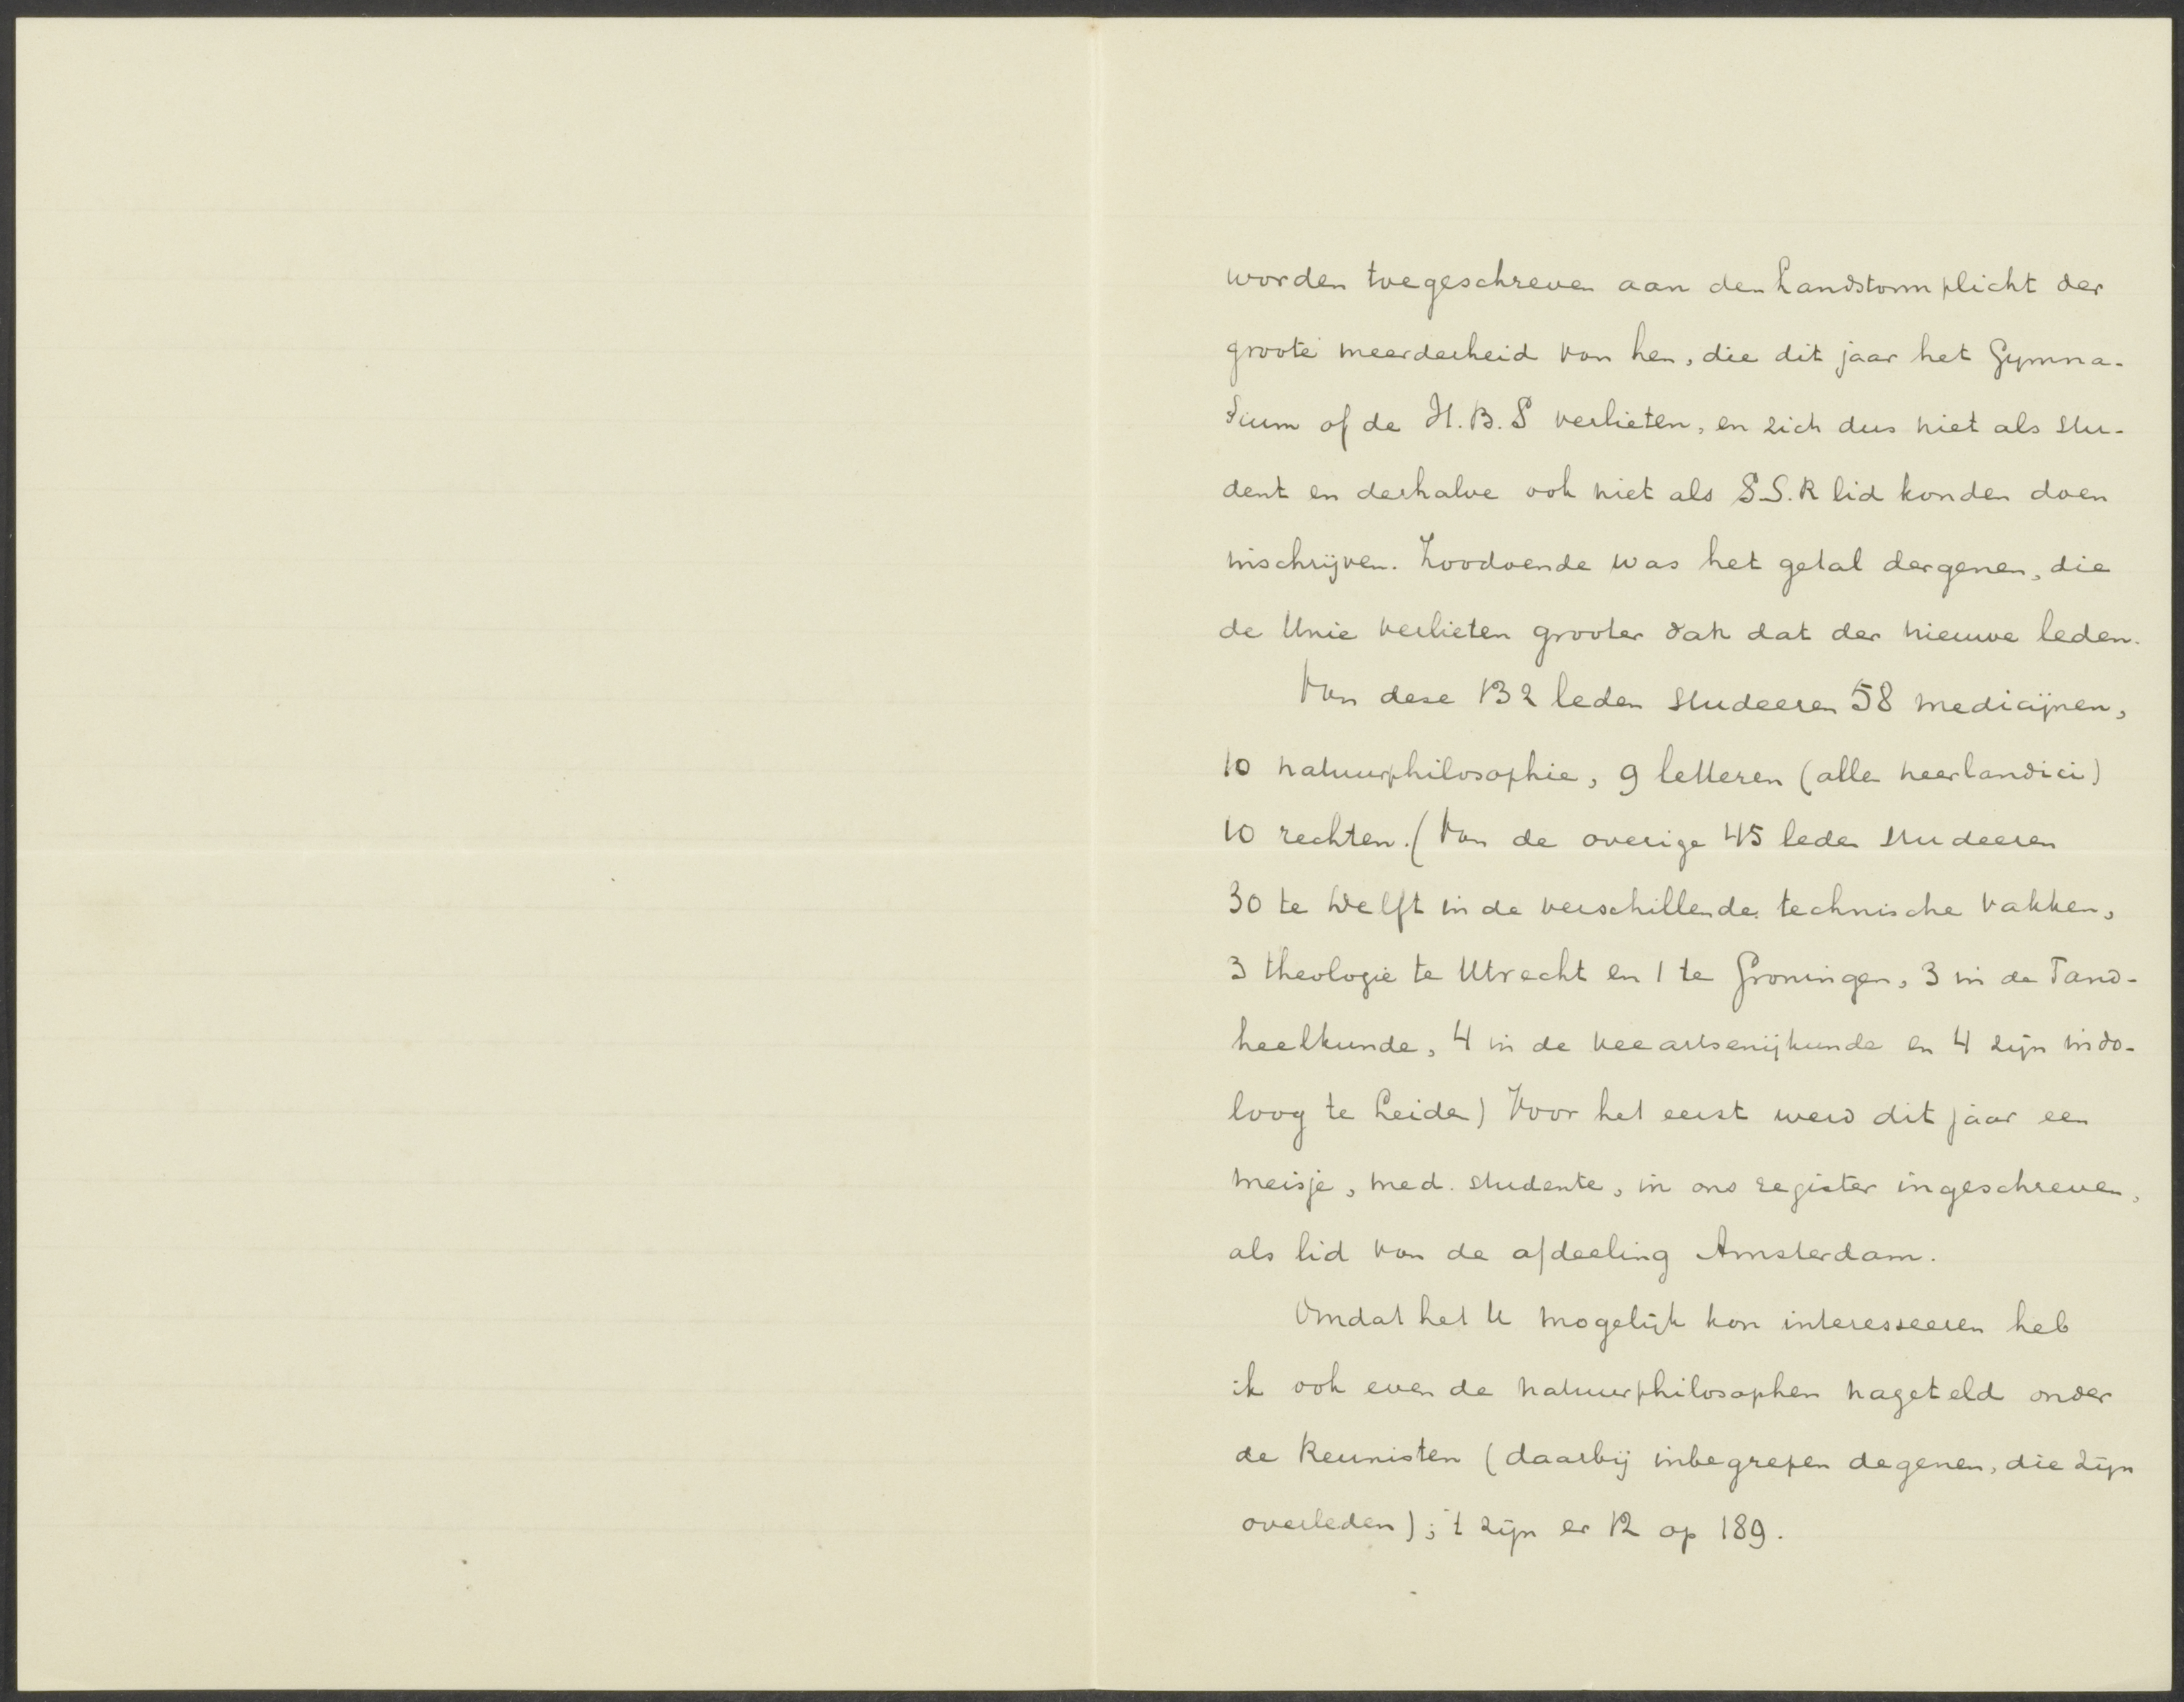 worden toegeschreven aan den Landstormplicht der
groote meerderheid van hen, die dit jaar het Gymna-
sium of de H.B.S verlieten, en zich dus niet als stu-
dent en derhalve ook niet als S.S.R lid konden doen
inschrijven. Zoodoende was het getal dergenen, die
de Unie verlieten grooter dan dat der nieuwe leden.
Van deze 132 leden studeeren 58 medicijnen,
10 natuurphilosophie, 9 letteren (alle neerlandici)
10 rechten. (Van de overige 45 leden studeeren
30 te Delft in de verschillende technische vakken,
3 theologie te Utrecht en 1 te Groningen, 3 in de Tand-
heelkunde, 4 in de veeartsenijkunde en 4 zijn indo-
loog te Leiden) Voor het eerst werd dit jaar een
meisje, med. studente, in ons register ingeschreven,
als lid van de afdeeling Amsterdam.
Omdat het U mogelijk kon interesseeren heb
ik ook even de natuurphilosophen nageteld onder
de Reunisten (daarbij inbegrepen degenen, die zijn
overleden); 't zijn er 12 op 189.